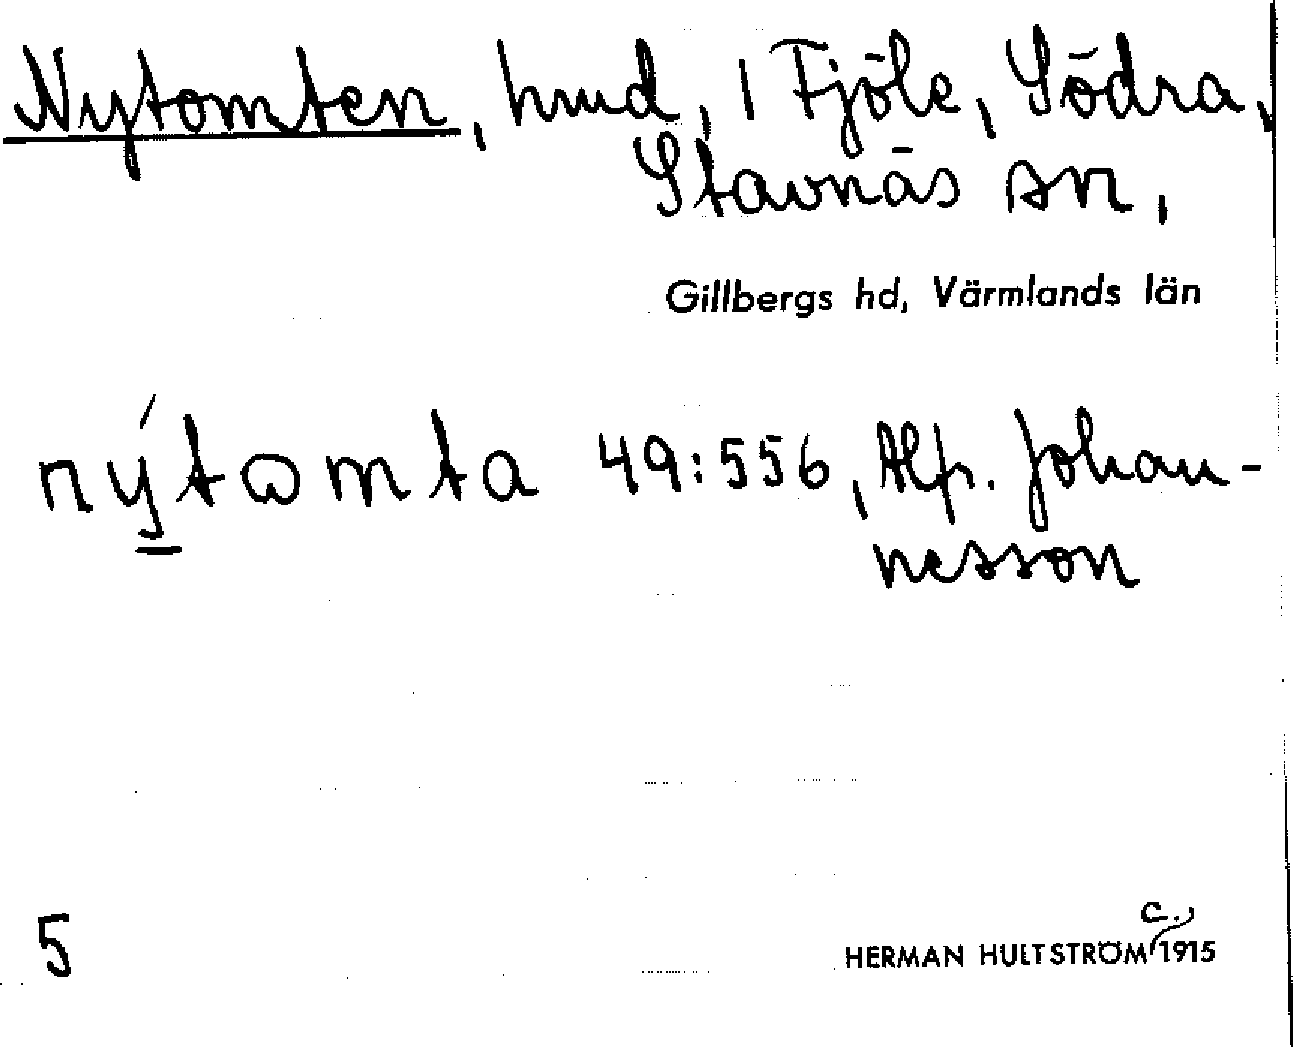 Nytomten, hmd, 1 Fjöle, Södra,
Stavnäs sn,
Gillbergs hd, Värmlands län
nýtωmta 49:556, Alfr. Johan-
nesson
5
c.,
HERMAN HULTSTRÖM 1915